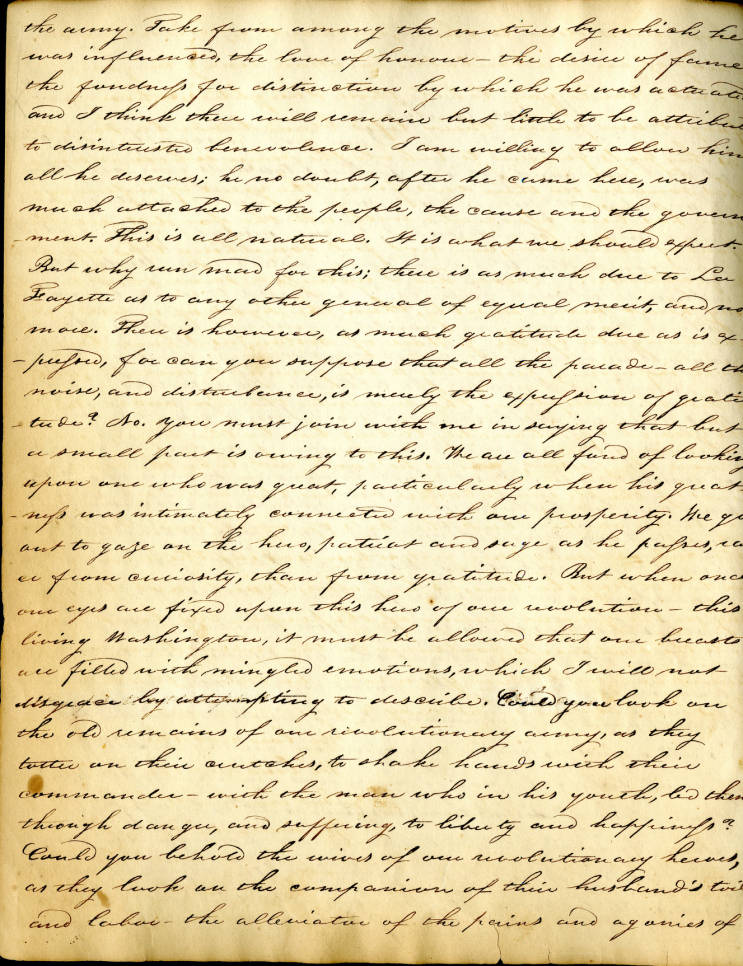 the army. Take from among the motives by which he
was influenced, the love of honour – the desire of fame
the fondness for distinction by which he was actuate
and I think there will remain but little to be attribu
to disinterested benevolence. I am willing to allow him
all he deserves; he no doubt, after he came here, was
much attached to the people, the cause and the govern
-ment. This is all natural. It is what we should expect.
But why run mad for this; there is as much due to La
Fayette as to any other general of equal merit, and no
more. There is however, as much gratitude due as is ex-
-pressed, for can you suppose that all the parade – all th
noise, and disturbance, is merely the expression of grati
-tude? No. You must join with me in saying that but
a small part is owing to this. We are all fond of looking
upon one who was great, particularly when his great-
-ness was intimately connected with our prosperity. We go
out to gaze on the hero, patriot and sage as he passes, ra
er from curiosity, than from gratitude. But when once
our eyes are fixed upon this hero of our revolution – this
living Washington, it must be allowed that our breasts
are filled with mingled emotions, which I will not
disgrace by attempting to describe. Could you look on
the old remains of our revolutionary army, as they
totter on their crutches, to shake hands with their
commander – with the man who in his youth, led them
through danger, and suffering, to liberty and happiness?
Could you behold the wives of our revolutionary heroes,
as they look on the companion of their husband's toil
and labor – the alleviator of the pains and agonies of